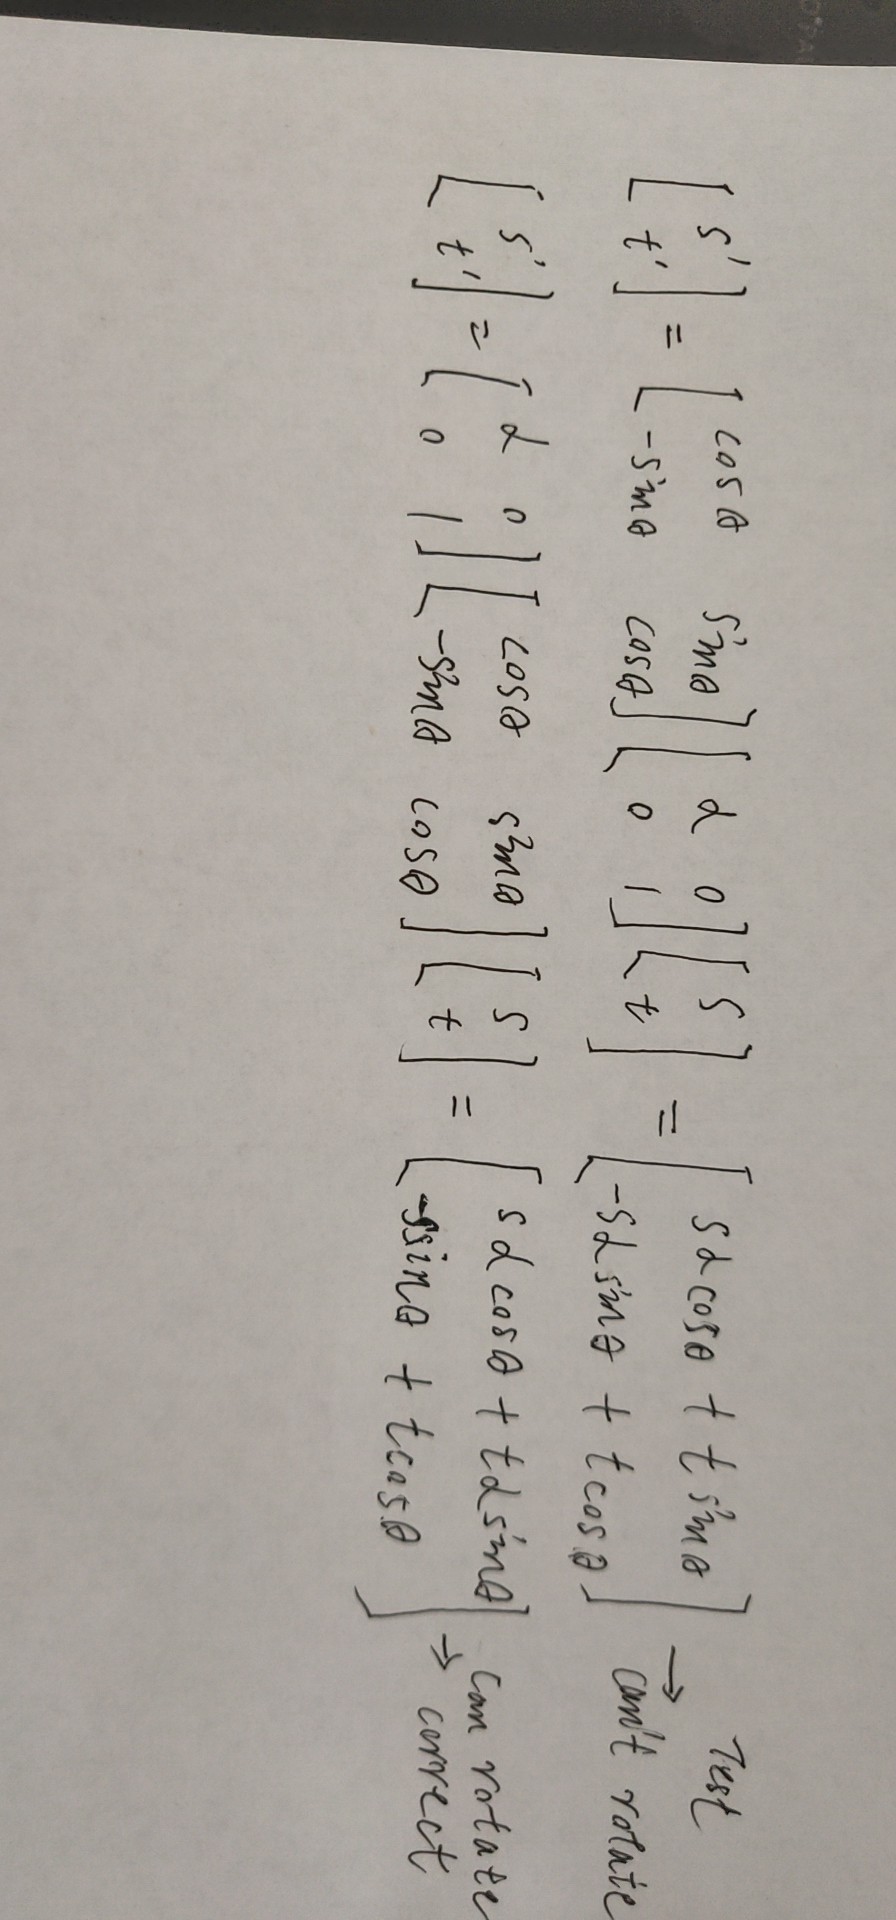 [s' t'] = [cosθ sinθ -sinθ cosθ] [α 0 0 1] [s t] = [sα cosθ + t sinθ -sα sinθ + t cosθ] → Test can't rotate
[s' t'] = [α 0 0 1] [cosθ sinθ -sinθ cosθ] [s t] = [sα cosθ + tα sinθ -s sinθ + t cosθ] → can rotate correct